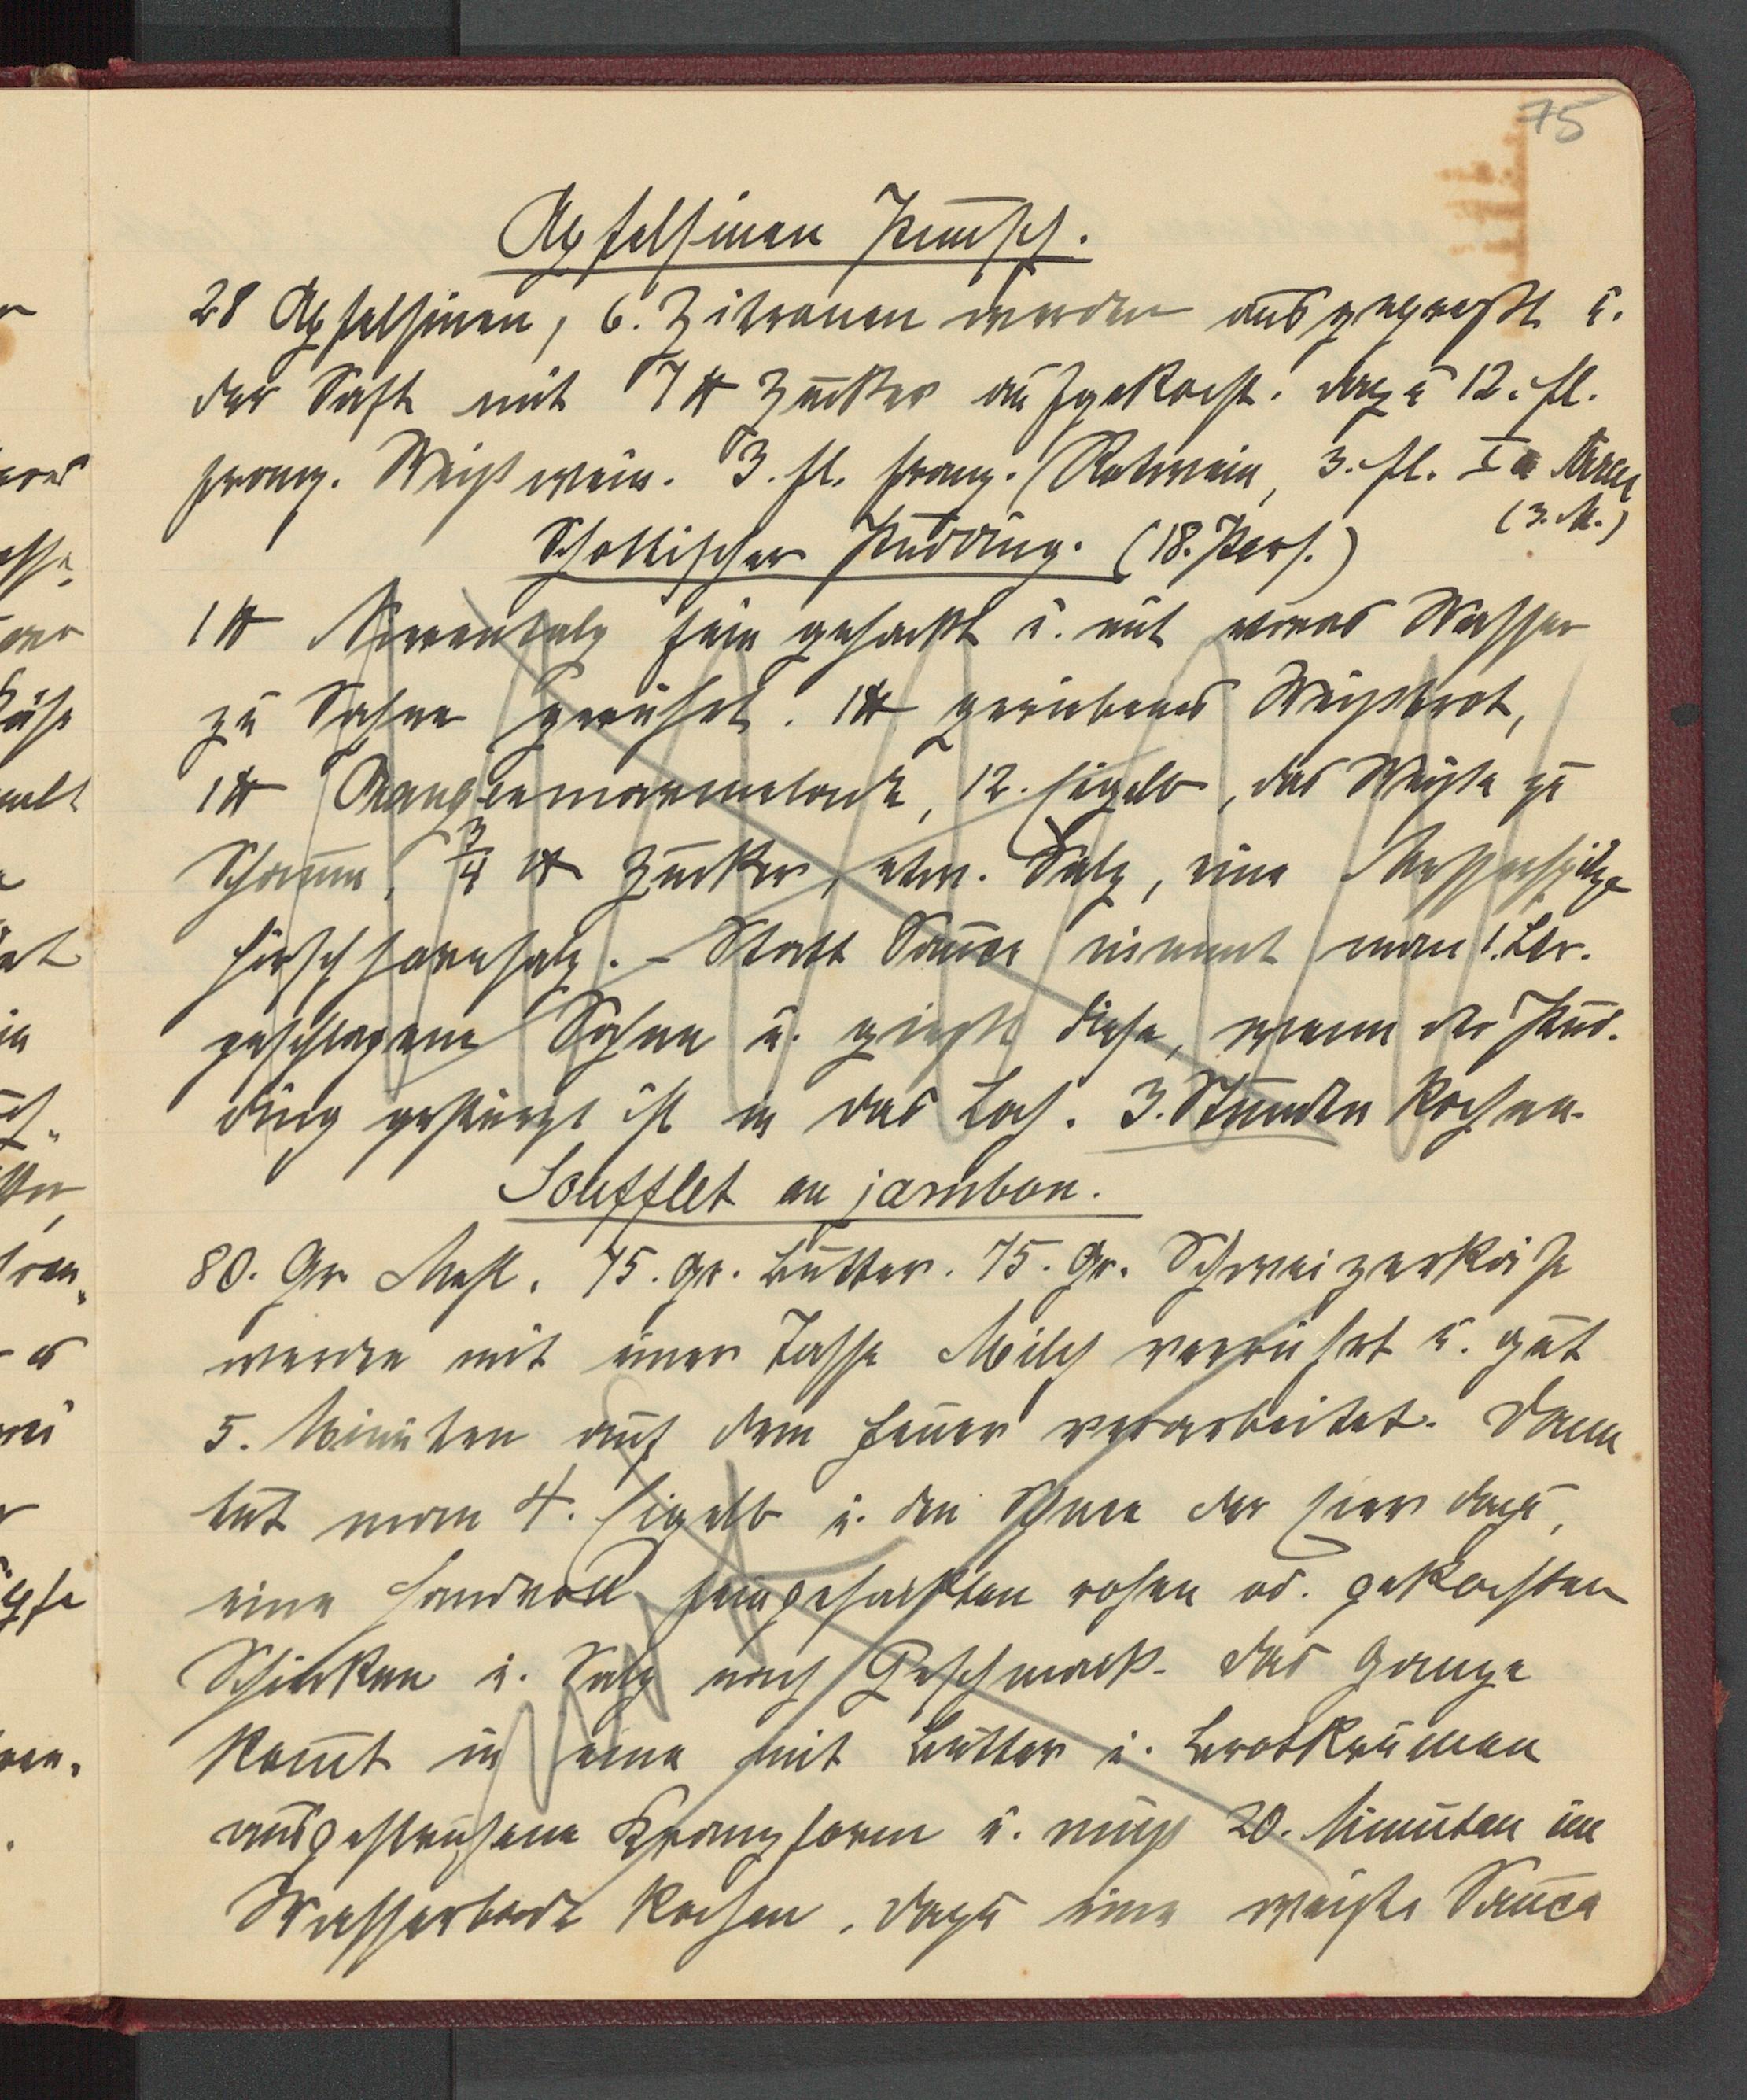 75
Apfelsinen Punsch.
28 Apfelsinen, 6. Zitronen werden ausgepreßt u.
der Saft mit 7 ℔ Zucker aufgekocht. dazu 12. fl.
franz. Weißwein. 3. fl. franz. Rotwein, 3. fl. Ia Arac
(3. M.)
Schottischer Pudding. (18. Pers.)
1 ℔ Nierentalg fein gehackt u. mit etwas Wasser
zu Sahne gerührt. 1 ℔ geriebenes Weißbrot,
1 ℔ Orangenmarmelade, 12. Eigelb, das Weiße zu
Schaum, 3/4 ℔ Zucker, etw. Salz, eine Messerspitze
Hirschhornsalz. – Statt Sauce nimmt man 1. Ltr.
geschlagene Sahne u. gießt diese, wenn der Pud.
ding gestürzt ist in das Loch. 3. Stunden kochen.
Soufflet au jambon.
80. Gr Mehl. 75. gr. Butter. 75. Gr. Schweizerkäse
werden mit einer Tasse Milch verrührt u. gut
5. Minuten auf dem Feuer verarbeitet. Dann
tut man 4. Eigelb u. den Schnee der Eier dazu,
eine Handvoll feingehackten rohen od. gekochten
Schinken u. Salz nach Geschmack. das Ganze
kom̅t in eine mit Butter u. Brotkrumen
ausgestrichene Kranzform u. muß 20. Minuten im
Wasserbade kochen. dazu eine weiße Sauce